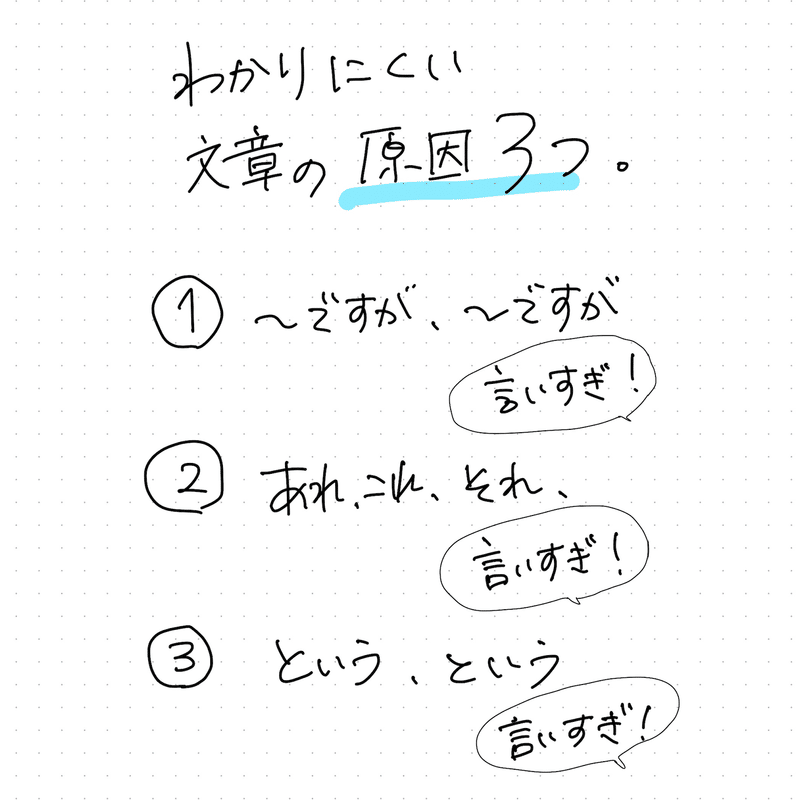 わかりにくい
文章の原因3つ。
① 〜ですが、〜ですが
言いすぎ!
② あれ、これ、それ、
言いすぎ!
③ という、という
言いすぎ!